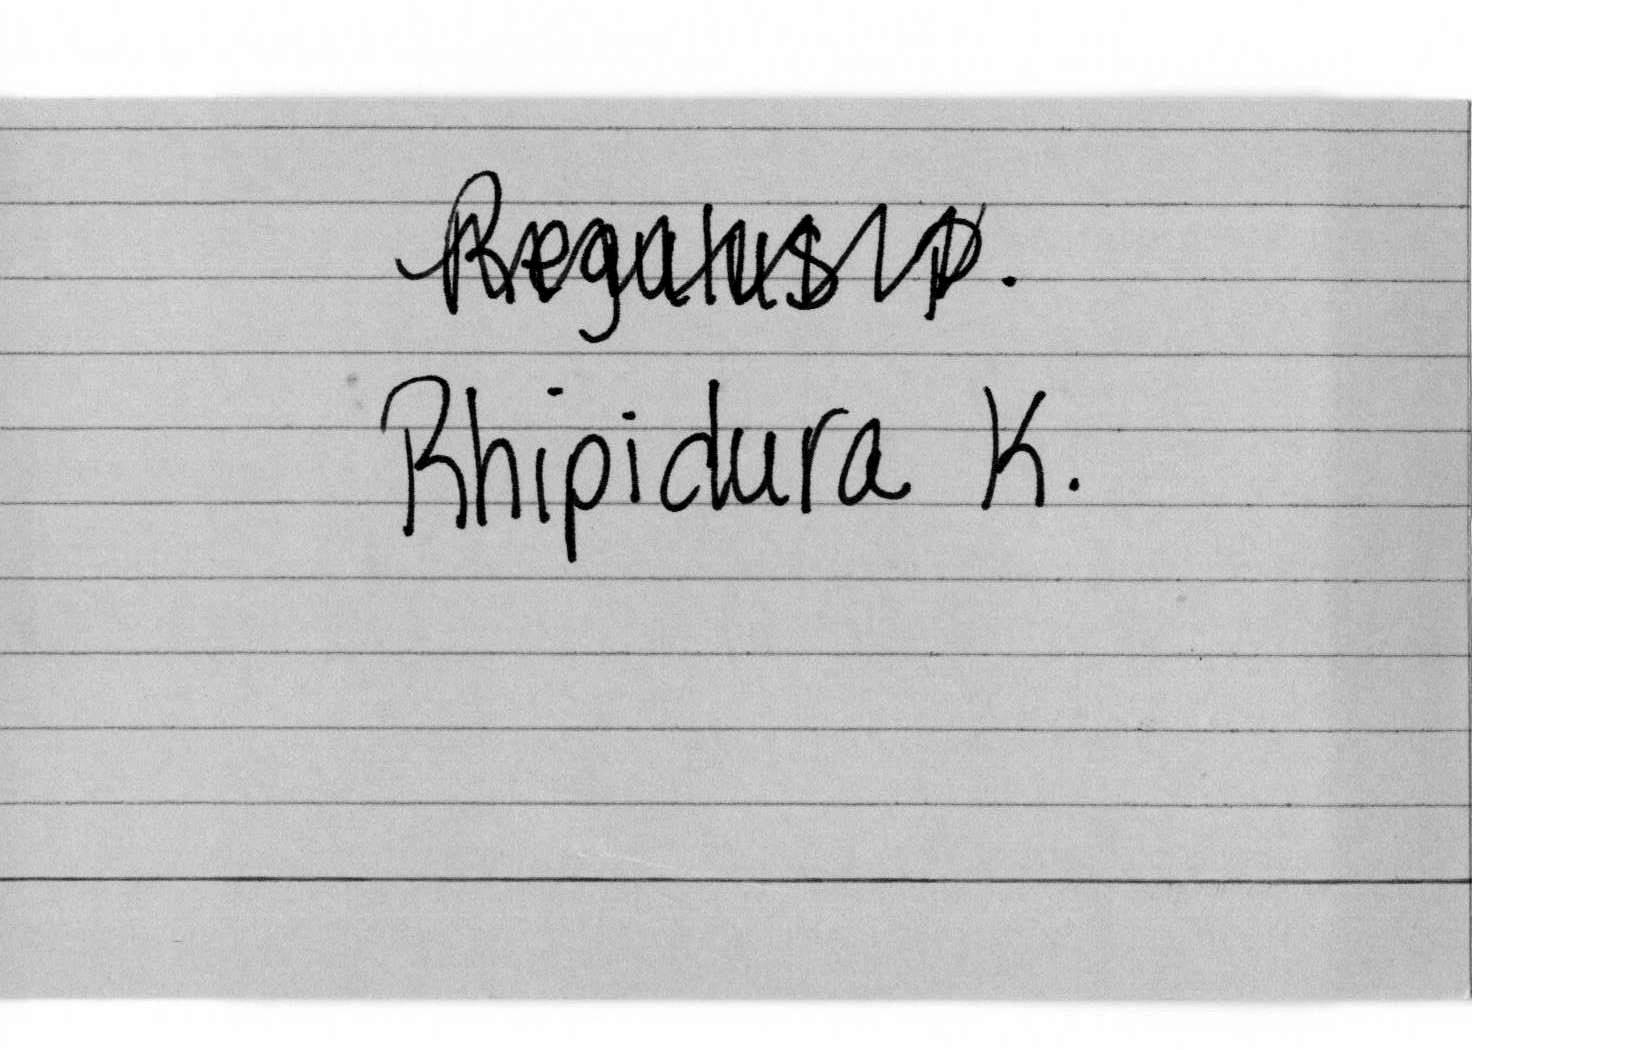 Regulus P.
Rhipidura K.